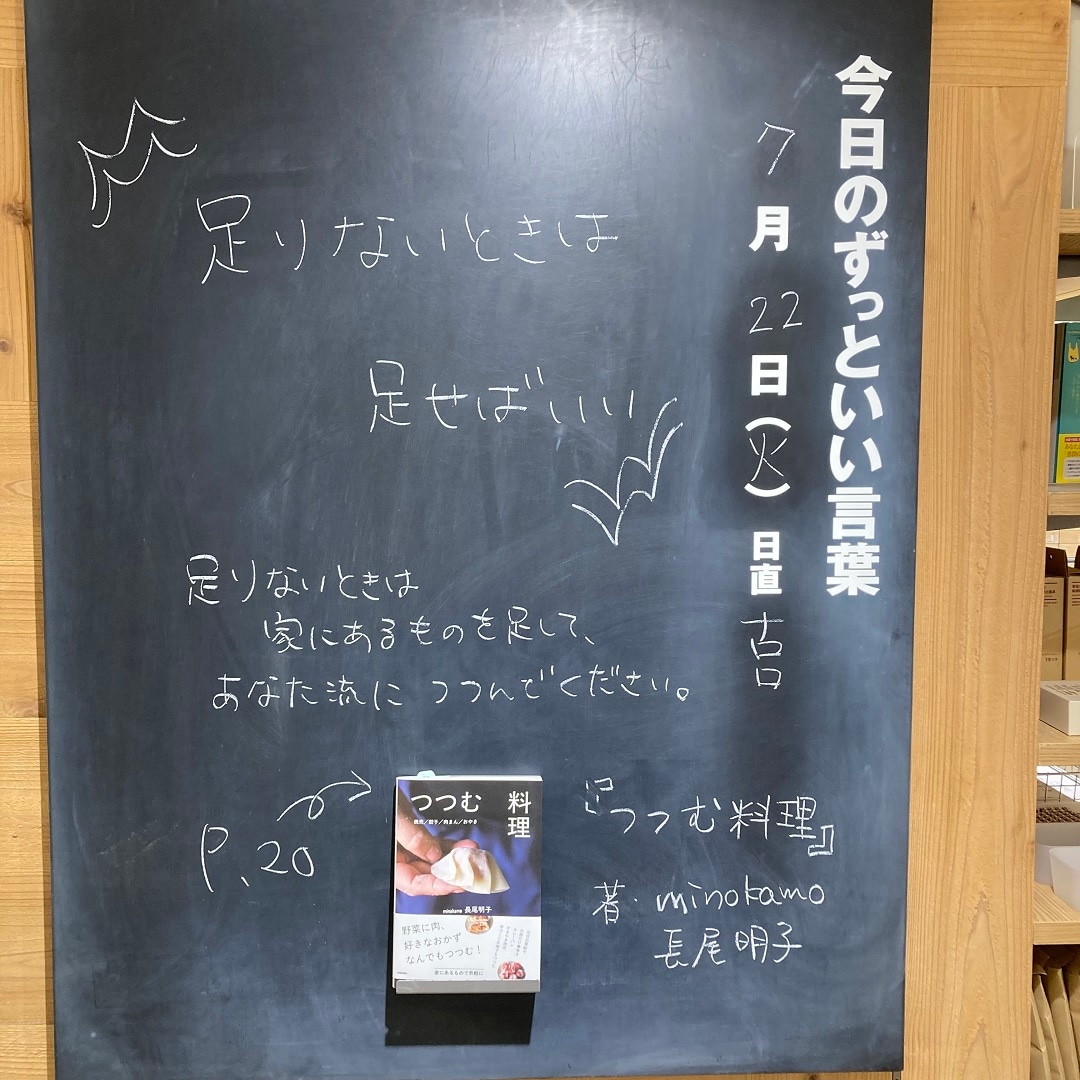 今日のずっといい言葉
7月22日(火) 日直 吉
足りないときは
足せばいい
足りないときは
家にあるものを足して、
あなた流につつんでください。
P.20
つつむ 料理
焼売/餃子/肉まん/おやき
minokamo 長尾明子
野菜に肉、
好きなおかず
なんでもつつむ!
家にあるもので気軽に
『つつむ料理』
著・minokamo
長尾明子